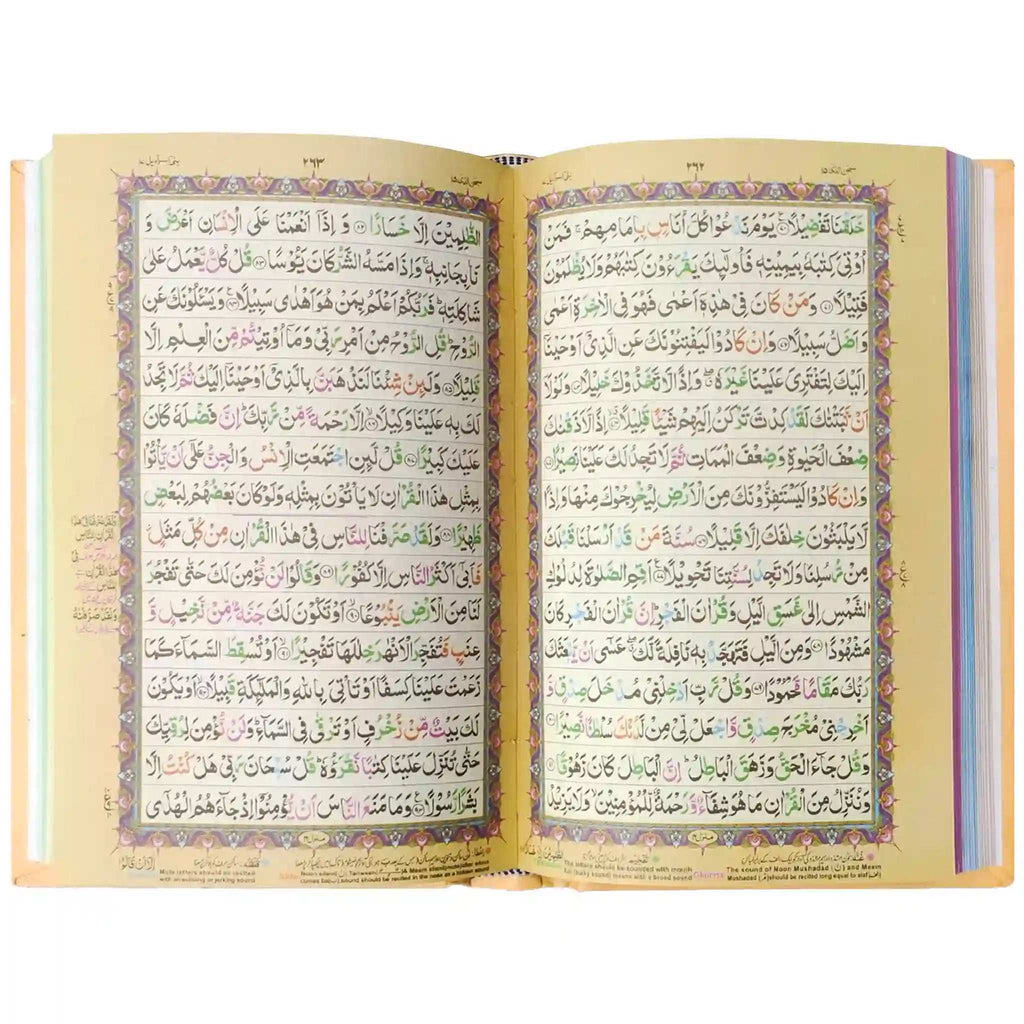 سبحن الذی ۱۵ ۲۶۲ بنی اسرآءیل ۱۷
خَلَقْنَا تَفْضِيْلًا ۞ يَوْمَ نَدْعُوْا كُلَّ اُنَاسٍۢ بِاِمَامِهِمْ ۚ فَمَنْ
اُوْتِيَ كِتٰبَهٗ بِيَمِيْنِهٖ فَاُولٰٓئِكَ يَقْرَءُوْنَ كِتٰبَهُمْ وَلَا يُظْلَمُوْنَ
فَتِيْلًا ۞ وَمَنْ كَانَ فِيْ هٰذِهٖٓ اَعْمٰى فَهُوَ فِي الْاٰخِرَةِ اَعْمٰى
وَاَضَلُّ سَبِيْلًا ۞ وَاِنْ كَادُوْا لَيَفْتِنُوْنَكَ عَنِ الَّذِيْٓ اَوْحَيْنَآ
اِلَيْكَ لِتَفْتَرِيَ عَلَيْنَا غَيْرَهٗ ۖ وَاِذًا لَّاتَّخَذُوْكَ خَلِيْلًا ۞ وَلَوْلَآ
اَنْ ثَبَّتْنٰكَ لَقَدْ كِدْتَّ تَرْكَنُ اِلَيْهِمْ شَيْـًٔا قَلِيْلًا ۞ اِذًا لَّاَذَقْنٰكَ
ضِعْفَ الْحَيٰوةِ وَضِعْفَ الْمَمَاتِ ثُمَّ لَا تَجِدُ لَكَ عَلَيْنَا نَصِيْرًا ۞
وَاِنْ كَادُوْا لَيَسْتَفِزُّوْنَكَ مِنَ الْاَرْضِ لِيُخْرِجُوْكَ مِنْهَا وَاِذًا
لَّا يَلْبَثُوْنَ خِلٰفَكَ اِلَّا قَلِيْلًا ۞ سُنَّةَ مَنْ قَدْ اَرْسَلْنَا قَبْلَكَ
مِنْ رُّسُلِنَا وَلَا تَجِدُ لِسُنَّتِنَا تَحْوِيْلًا ۞ اَقِمِ الصَّلٰوةَ لِدُلُوْكِ
الشَّمْسِ اِلٰى غَسَقِ الَّيْلِ وَقُرْاٰنَ الْفَجْرِ ۖ اِنَّ قُرْاٰنَ الْفَجْرِ كَانَ
مَشْهُوْدًا ۞ وَمِنَ الَّيْلِ فَتَهَجَّدْ بِهٖ نَافِلَةً لَّكَ ۖ عَسٰٓى اَنْ يَّبْعَثَكَ
رَبُّكَ مَقَامًا مَّحْمُوْدًا ۞ وَقُلْ رَّبِّ اَدْخِلْنِيْ مُدْخَلَ صِدْقٍ وَّ
اَخْرِجْنِيْ مُخْرَجَ صِدْقٍ وَّاجْعَلْ لِّيْ مِنْ لَّدُنْكَ سُلْطٰنًا نَّصِيْرًا ۞
وَقُلْ جَآءَ الْحَقُّ وَزَهَقَ الْبَاطِلُ ۚ اِنَّ الْبَاطِلَ كَانَ زَهُوْقًا ۞
وَنُنَزِّلُ مِنَ الْقُرْاٰنِ مَا هُوَ شِفَآءٌ وَّرَحْمَةٌ لِّلْمُؤْمِنِيْنَ ۙ وَلَا يَزِيْدُ
منزل ۴
The letters should be sounded with mouth full (bulky sound) means with a broad sound
Ghunna The sound of Noon Mushadad (نّ) and Meem Mushadad (مّ) should be recited long equal to alaf
سبحن الذی ۱۵ ۲۶۳ بنی اسرآءیل ۱۷
الظّٰلِمِيْنَ اِلَّا خَسَارًا ۞ وَ اِذَآ اَنْعَمْنَا عَلَى الْاِنْسَانِ اَعْرَضَ وَ
نَاٰ بِجَانِبِهٖ ۚ وَاِذَا مَسَّهُ الشَّرُّ كَانَ يَـُٔوْسًا ۞ قُلْ كُلٌّ يَّعْمَلُ عَلٰى
شَاكِلَتِهٖ ۗ فَرَبُّكُمْ اَعْلَمُ بِمَنْ هُوَ اَهْدٰى سَبِيْلًا ۞ وَيَسْـَٔلُوْنَكَ عَنِ
الرُّوْحِ ۗ قُلِ الرُّوْحُ مِنْ اَمْرِ رَبِّيْ وَمَآ اُوْتِيْتُمْ مِّنَ الْعِلْمِ اِلَّا
قَلِيْلًا ۞ وَلَئِنْ شِئْنَا لَنَذْهَبَنَّ بِالَّذِيْٓ اَوْحَيْنَآ اِلَيْكَ ثُمَّ لَا تَجِدُ
لَكَ بِهٖ عَلَيْنَا وَكِيْلًا ۞ اِلَّا رَحْمَةً مِّنْ رَّبِّكَ ۗ اِنَّ فَضْلَهٗ كَانَ
عَلَيْكَ كَبِيْرًا ۞ قُلْ لَّئِنِ اجْتَمَعَتِ الْاِنْسُ وَالْجِنُّ عَلٰٓى اَنْ يَّاْتُوْا
بِمِثْلِ هٰذَا الْقُرْاٰنِ لَا يَاْتُوْنَ بِمِثْلِهٖ وَلَوْ كَانَ بَعْضُهُمْ لِبَعْضٍ
ظَهِيْرًا ۞ وَلَقَدْ صَرَّفْنَا لِلنَّاسِ فِيْ هٰذَا الْقُرْاٰنِ مِنْ كُلِّ مَثَلٍ ۙ
فَاَبٰٓى اَكْثَرُ النَّاسِ اِلَّا كُفُوْرًا ۞ وَقَالُوْا لَنْ نُّؤْمِنَ لَكَ حَتّٰى تَفْجُرَ
لَنَا مِنَ الْاَرْضِ يَنْۢبُوْعًا ۞ اَوْ تَكُوْنَ لَكَ جَنَّةٌ مِّنْ نَّخِيْلٍ وَّ
عِنَبٍ فَتُفَجِّرَ الْاَنْهٰرَ خِلٰلَهَا تَفْجِيْرًا ۞ اَوْ تُسْقِطَ السَّمَآءَ كَمَا
زَعَمْتَ عَلَيْنَا كِسَفًا اَوْ تَاْتِيَ بِاللّٰهِ وَالْمَلٰٓئِكَةِ قَبِيْلًا ۞ اَوْ يَكُوْنَ
لَكَ بَيْتٌ مِّنْ زُخْرُفٍ اَوْ تَرْقٰى فِي السَّمَآءِ ۗ وَلَنْ نُّؤْمِنَ لِرُقِيِّكَ
حَتّٰى تُنَزِّلَ عَلَيْنَا كِتٰبًا نَّقْرَؤُهٗ ۗ قُلْ سُبْحَانَ رَبِّيْ هَلْ كُنْتُ اِلَّا
بَشَرًا رَّسُوْلًا ۞ وَمَا مَنَعَ النَّاسَ اَنْ يُّؤْمِنُوْٓا اِذْ جَآءَهُمُ الْهُدٰٓى
منزل ۴
Mute letters should be recited with an echoing or jerking sound